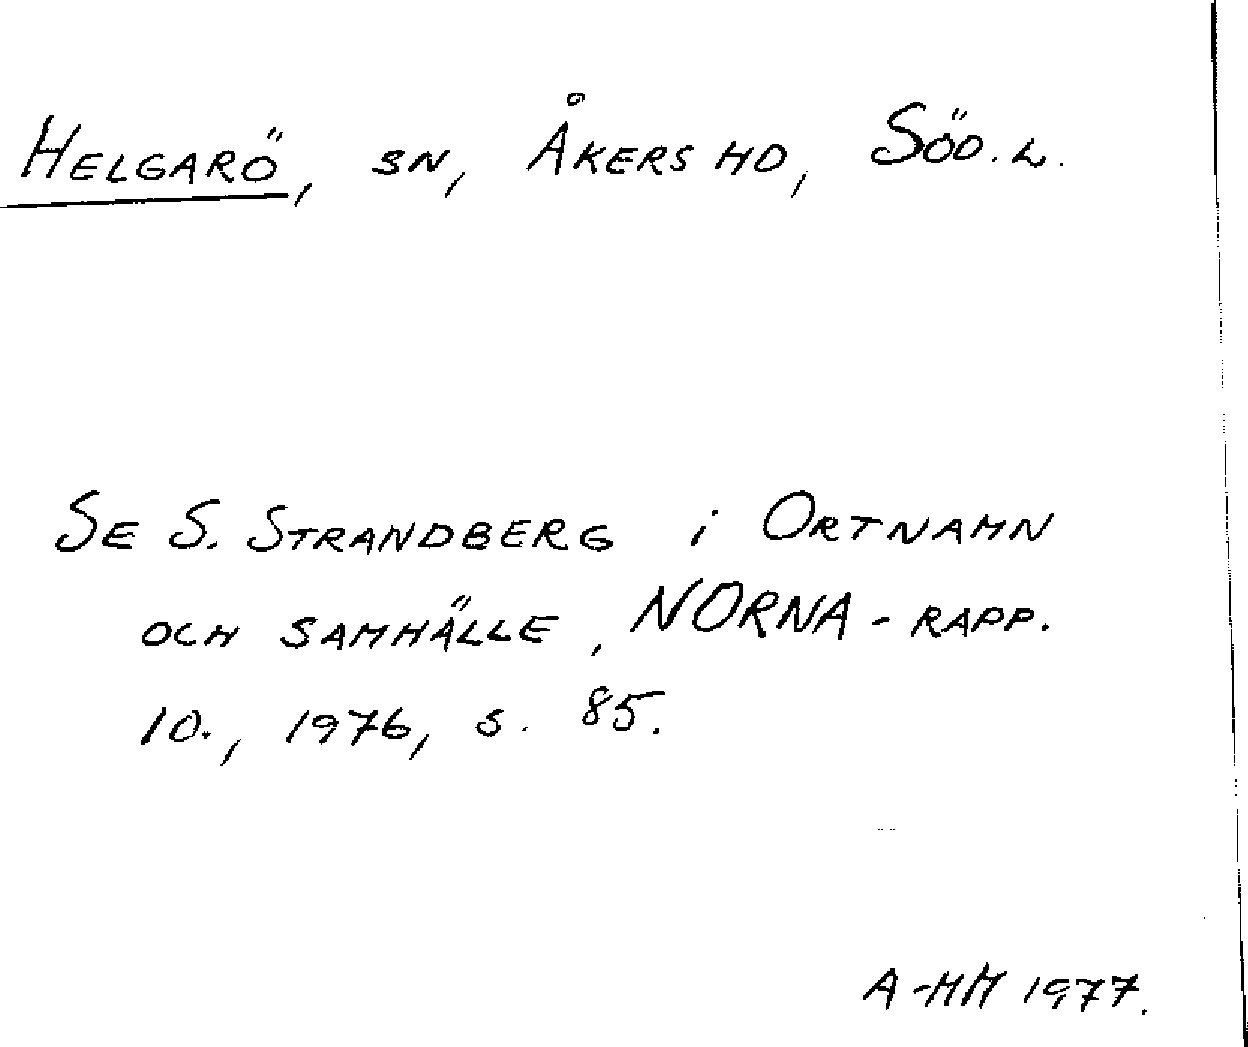 HELGARÖ, SN, ÅKERS HD, SÖD. L.
SE S. STRANDBERG i ORTNAMN
OCH SAMHÄLLE, NORNA-RAPP.
10., 1976, S. 85.
A-MM 1977.